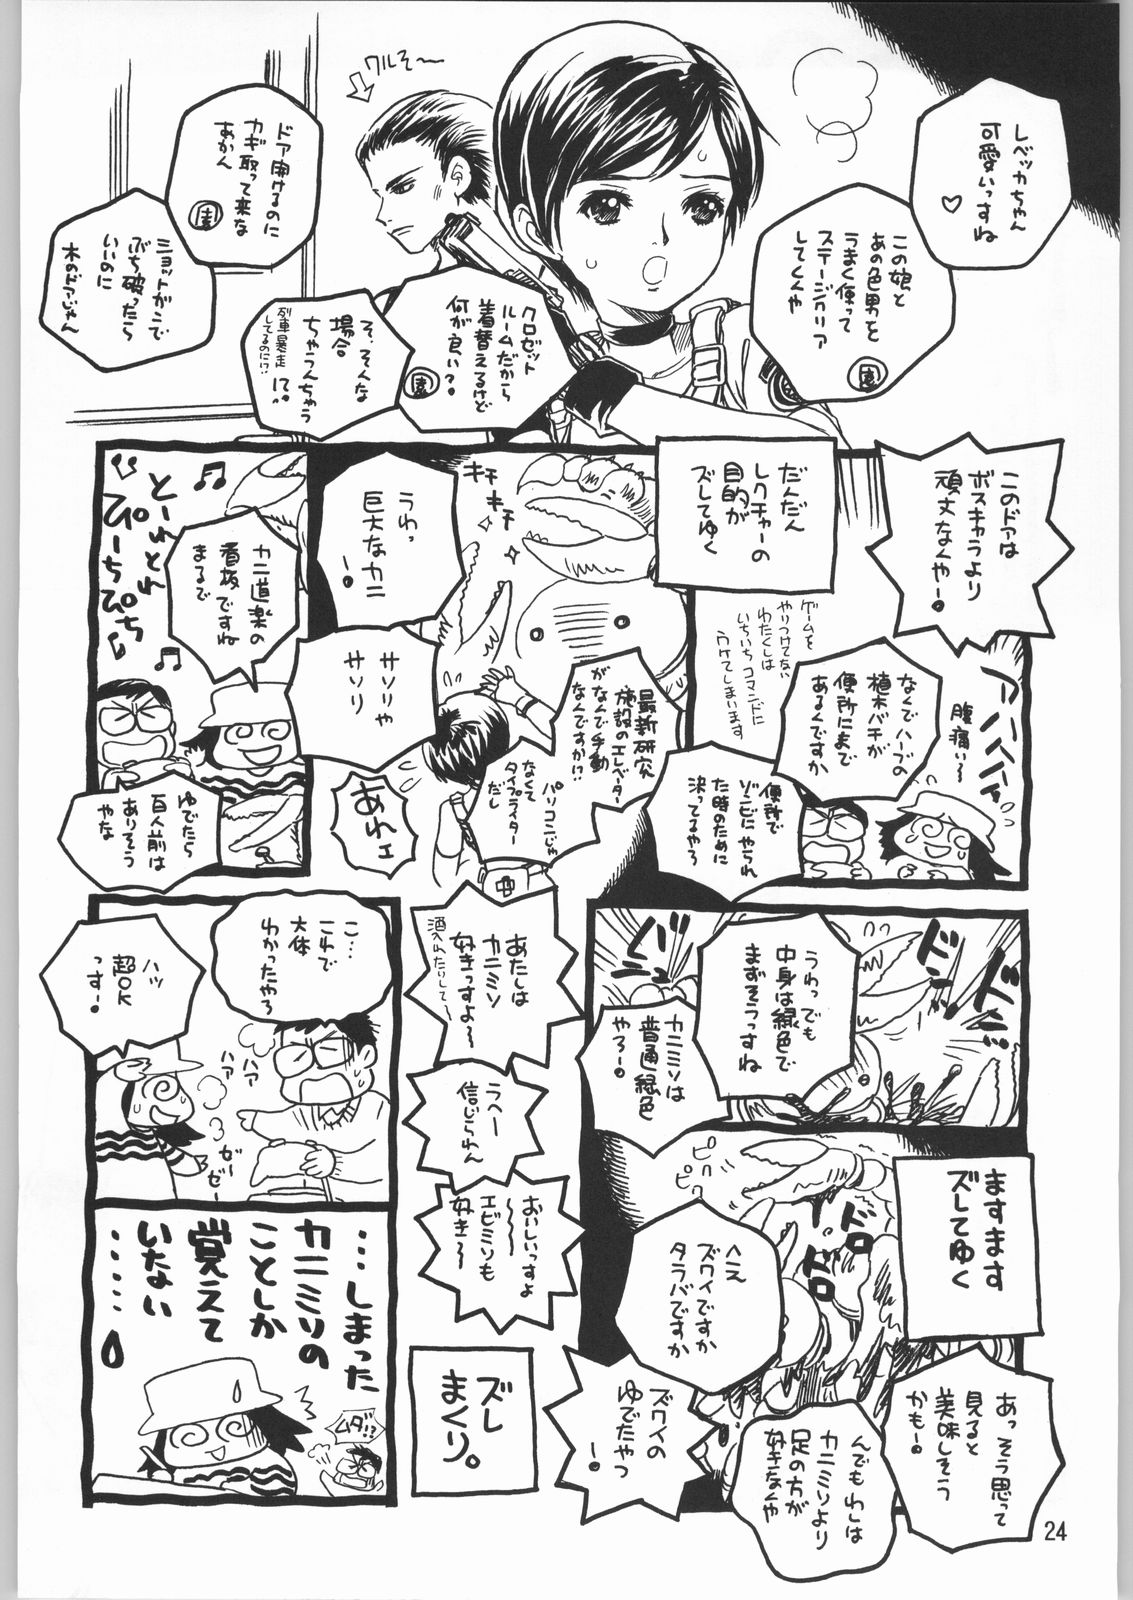 レベッカちゃん
可愛いっすね
♡
この娘と
あの色男を
うまく使って
ステージクリア
してくんや
園
ワルそ〜
クロゼット
ルームだから
着替えるけど
何が良い?
園
そ、そんな
場合
ちゃうんちゃう
に?
列車暴走
してるのに!?
ドア開けるのに
カギ取って来な
あかん
園
ショットガンで
ぶち破ったら
いいのに
木のドアじゃん
このドアは
ボスキャラより
頑丈なんや!
腹痛い〜
なんでハーブの
植木バチが
便所にまで
あるんですか
便所で
ゾンビにやられ
た時のために
決ってるやろ
ゲームを
やりつけてない
わたくしは
いちいちコマンドに
ウケてしまいます
だんだん
レクチャーの
目的が
ズレてゆく
キチ
キチ
最新研究
施設のエレベーター
がなんで手動
なんですか!?
パソコンじゃ
なくて
タイプライター
だし
うわっ
巨大なカニ
!
サソリや
サソリ
あれェ
カニ道楽の
看板ですね
まるで
とーれとれ
ぴーちぴち
ゆでたら
百人前は
ありそう
やな
ドドーン
うわっでも
中身は緑色で
まずそうっすね
カニミソは
普通緑色
やろ!
あたしは
カニミソ
好きっすよ〜
酒入れたりして〜
うへー
信じられん
おいしいっすよ
〜〜〜
エビミソも
好き〜
ますます
ズレてゆく
ピク
ピク
ドロ
ドロ
へえ
ズワイですか
タラバですか
ズワイの
ゆでたやつ
!
あっそう思って
見ると
美味しそう
かも!
んでもわしは
カニミソより
足の方が
好きなんや
ズレ
まくり。
こ…
これで
大体
わかったやろ
ハッ
超OK
っす!
ハァ
ハァ
ゼー
ゼー
…しまった
カニミソの
ことしか
覚えて
いない
……
ムダ!?
24